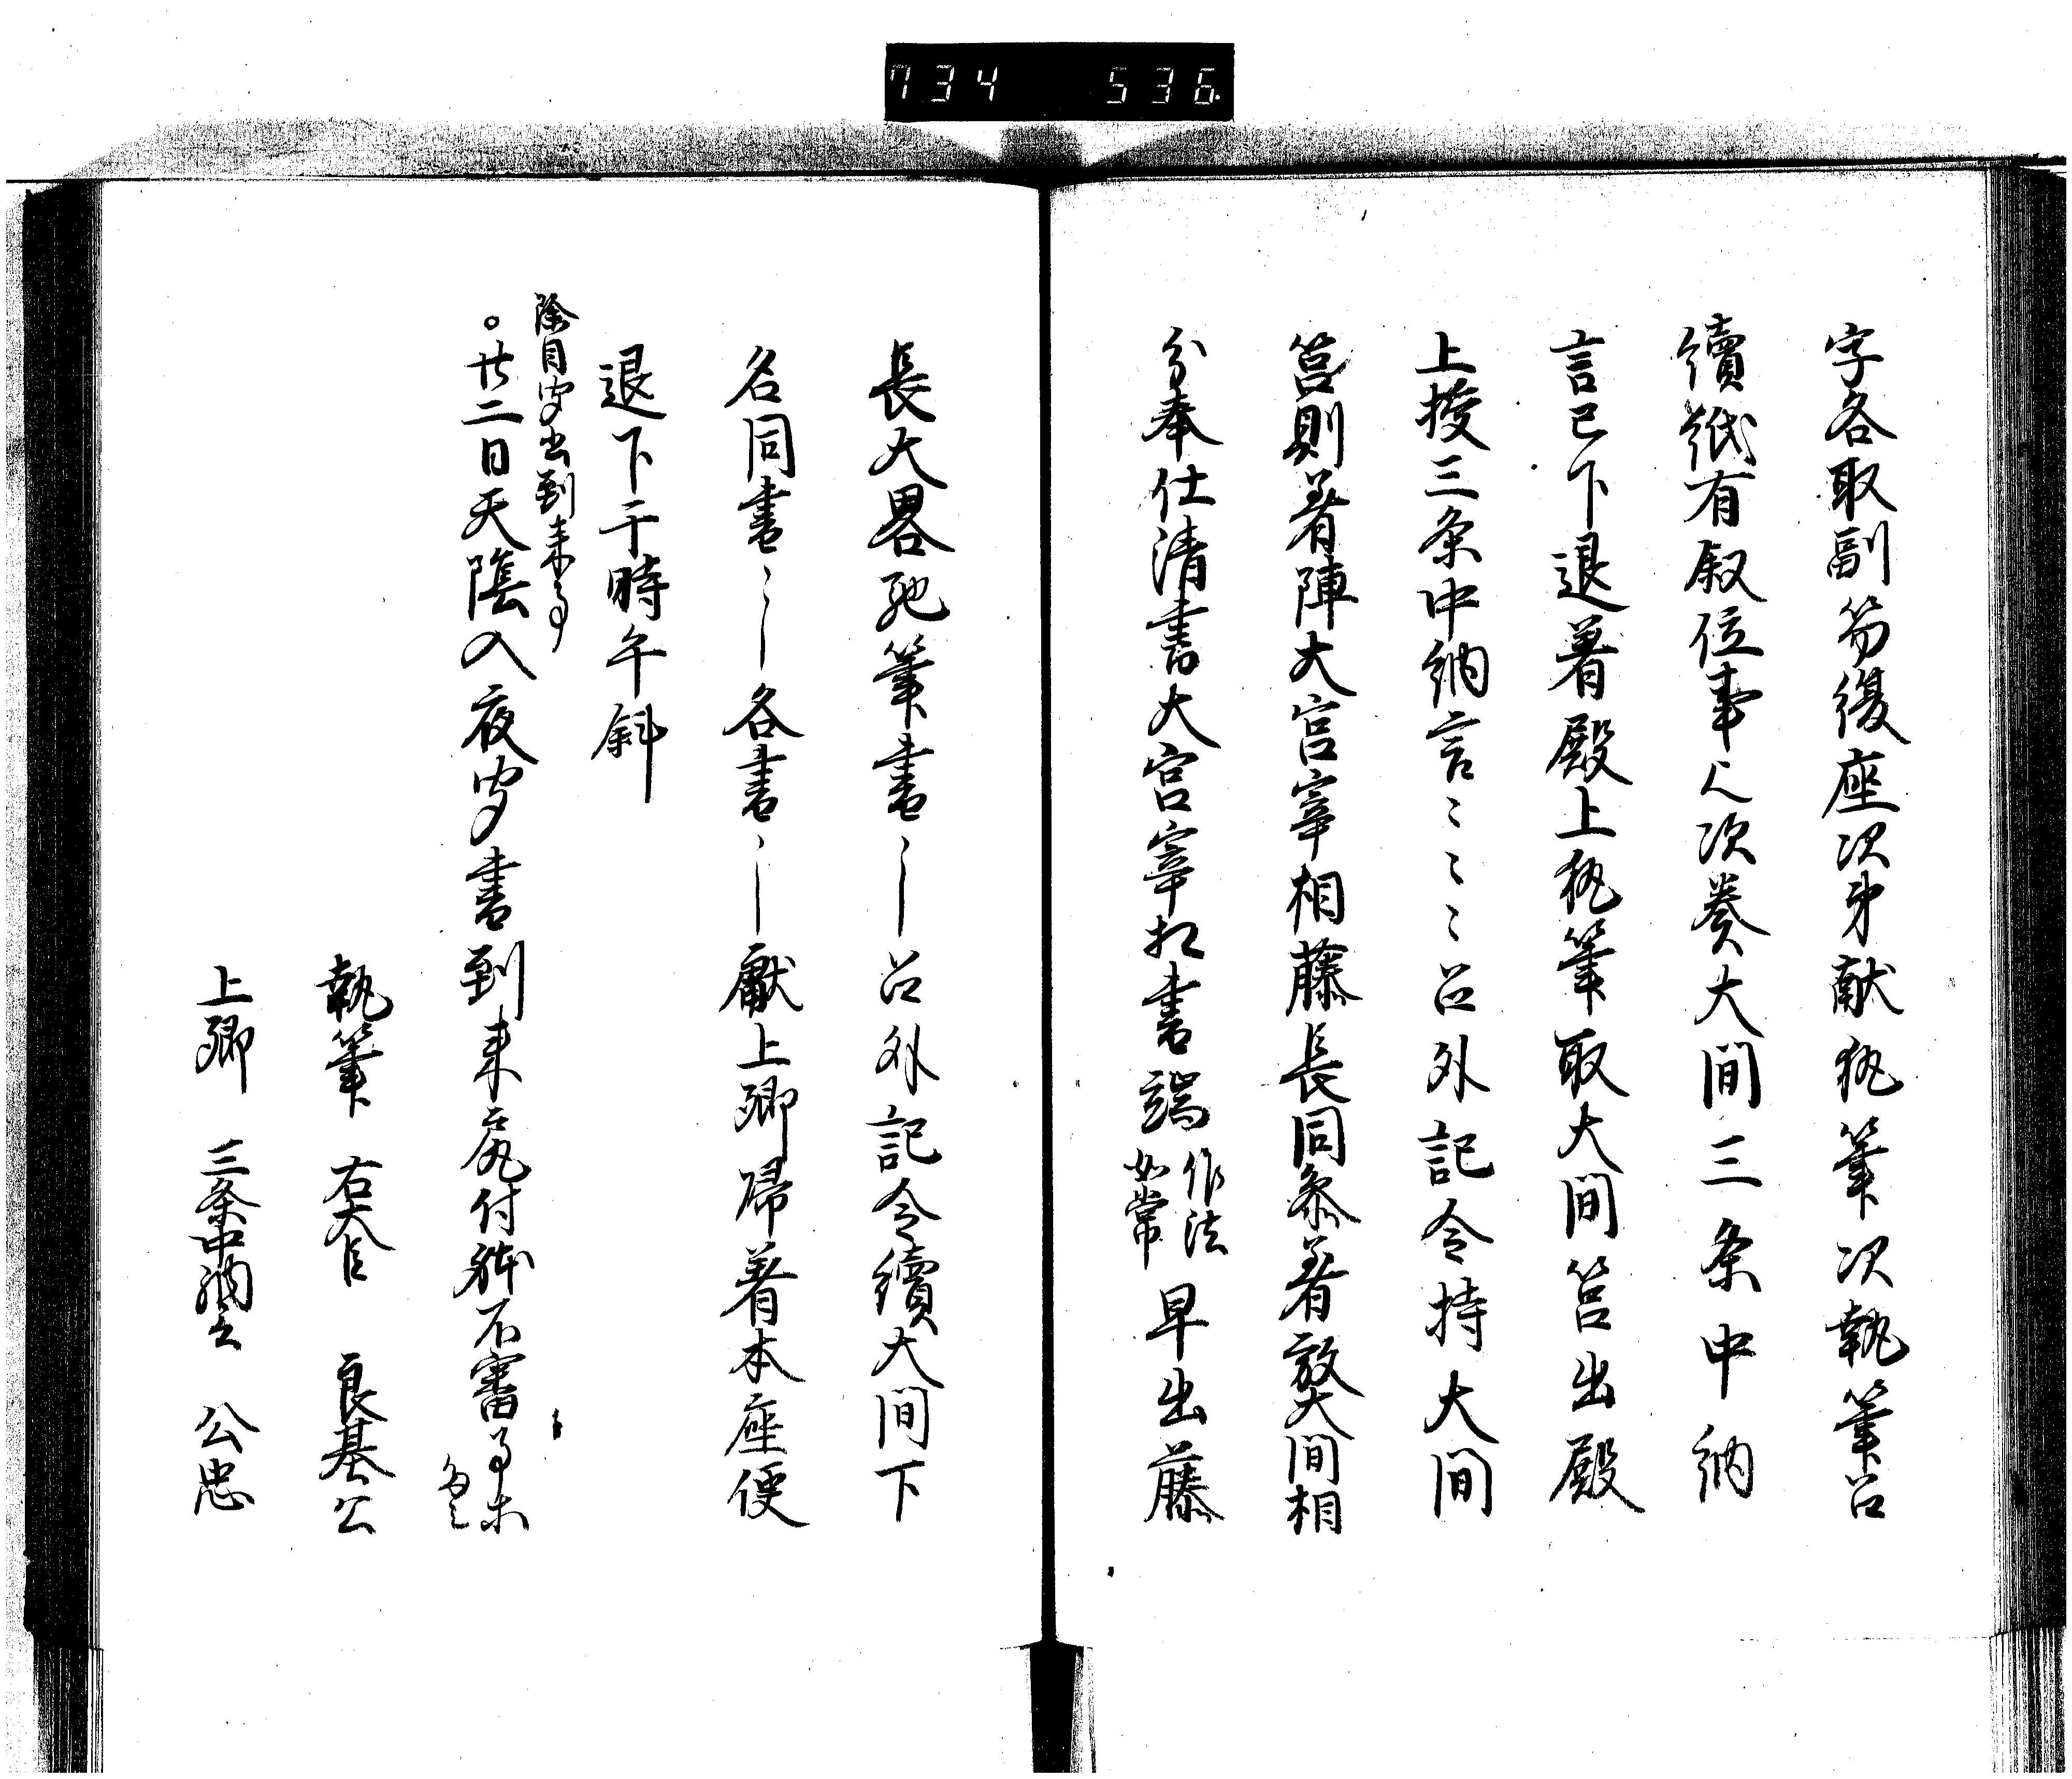 734 536
字各取副笏復座次第献執筆次執筆召
續紙有叙位事次巻大間三条中納
言已下退着殿上執筆取大間筥出殿
上授三条中納言〻〻〻召外記令持大間
筥則着陣大宮宰相藤長同参着放大間相
分奉仕清書大宮宰相書端作法如常早出藤
長大畧馳筆書〻召外記令續大間下
名同書〻各書〻獻上卿帰着本座便
退下于時午斜
除目聞書到来事
。廿二日天陰入夜聞書到来尻付躰不審事等
執筆 右大臣 良基公
上卿 三条中納言 公忠